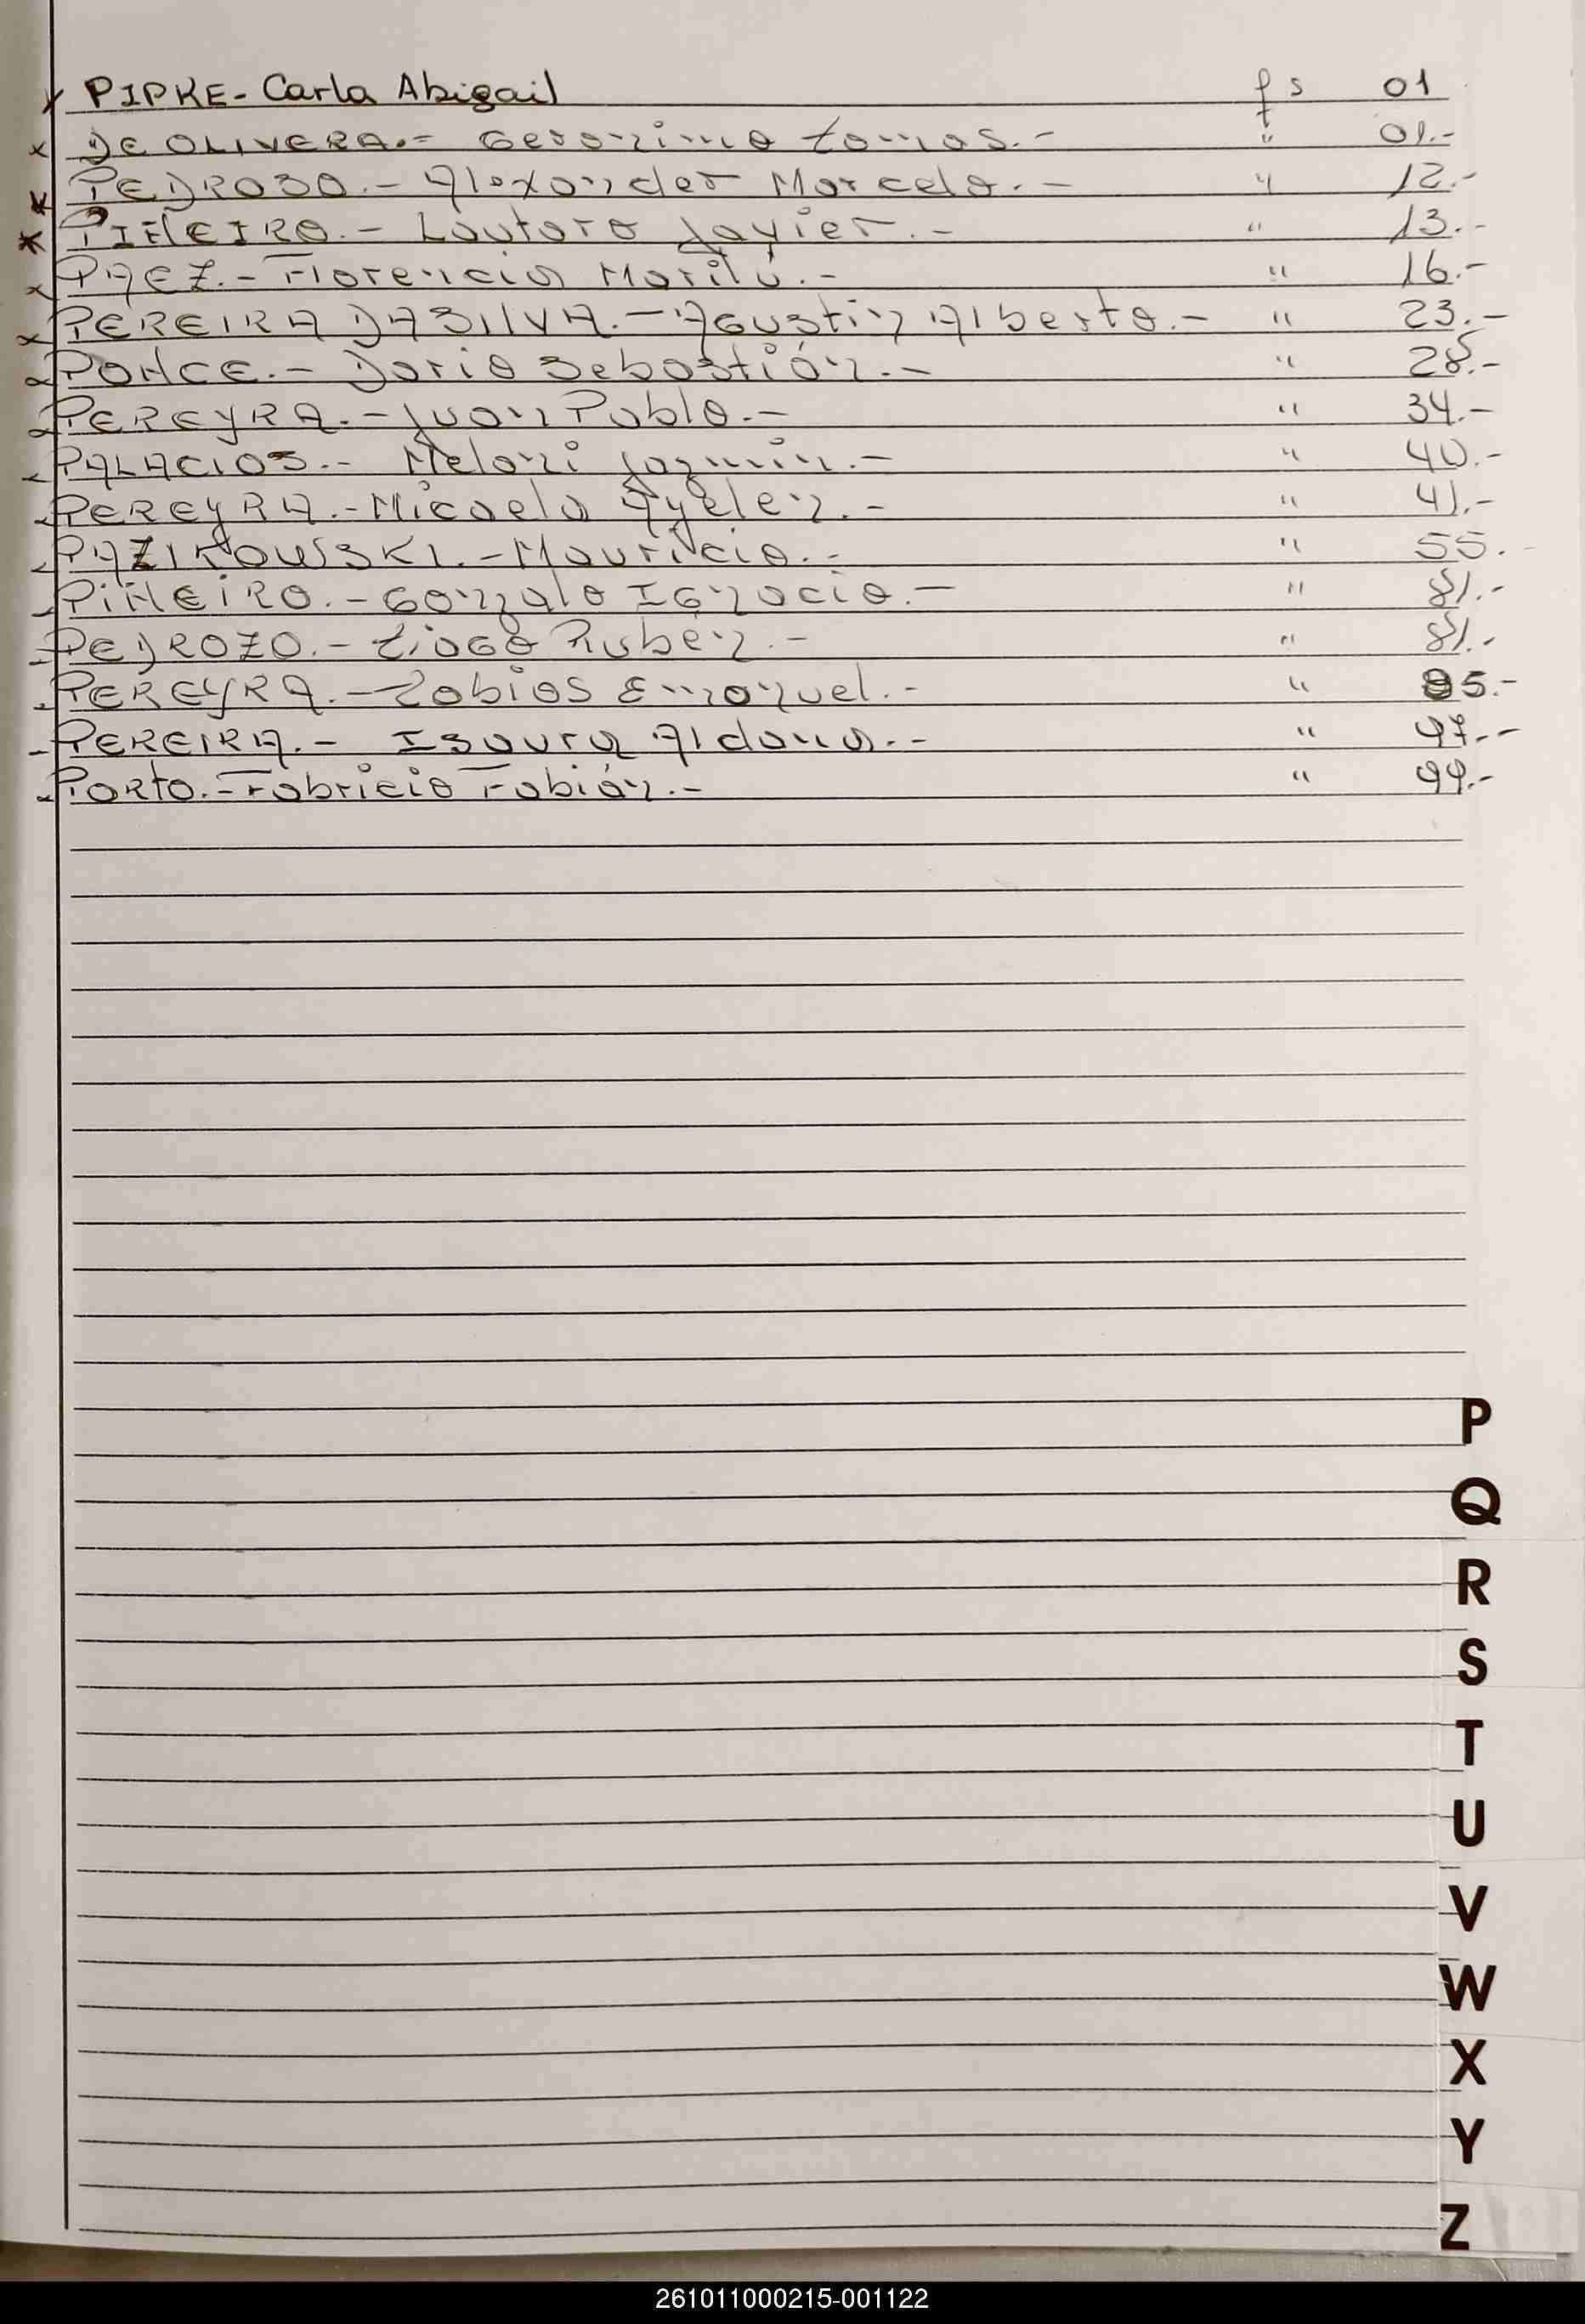 x PIPKE - Carla Abigail fs 01
x De OLIVERA.= Geronimo tomas.- " 01.-
x PEDROSO.- Alexander Marcelo.- " 12.-
x PIÑEIRO.- Lautaro Javier.- " 13.-
x PAEZ.- Florencia Marilú.- " 16.-
x PEREIRA DASILVA.- Agustin Alberto.- " 23.-
x PONCE.- Dario Sebastián.- " 28.-
x PEREYRA.- Juan Pablo.- " 34.-
PALACIOS.- Melani Jazmin.- " 40.-
PEREYRA.- Micaela Ayelen.- " 41.-
PAZIKOWSKI.- Mauricio.- " 55.-
PiÑEiRO.- Gonzalo Ignacio.- " 81.-
PEDROZO.- Ruben.- " 81.-
PEREYRA.- Tobias Emanuel.- " 5.-
PEREIRA.- Isaura Aldana.- " 97.-
PORTO.- Fabricio Fabián.- " 99.-
P
Q
R
S
T
U
V
W
X
Y
Z
261011000215-001122